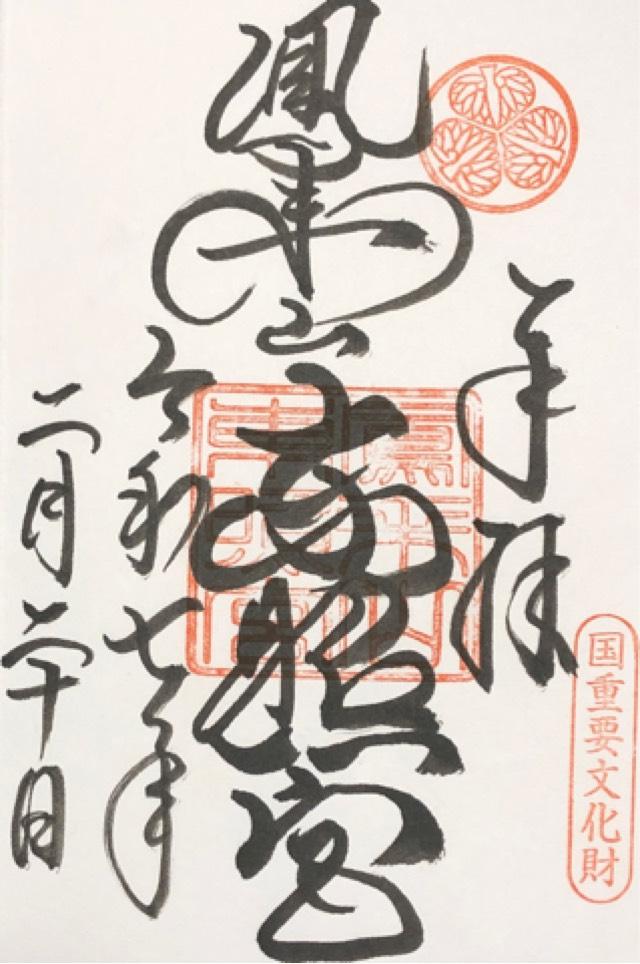 奉拝
国重要文化財
鳳来山
東照宮
令和七年
二月二十日